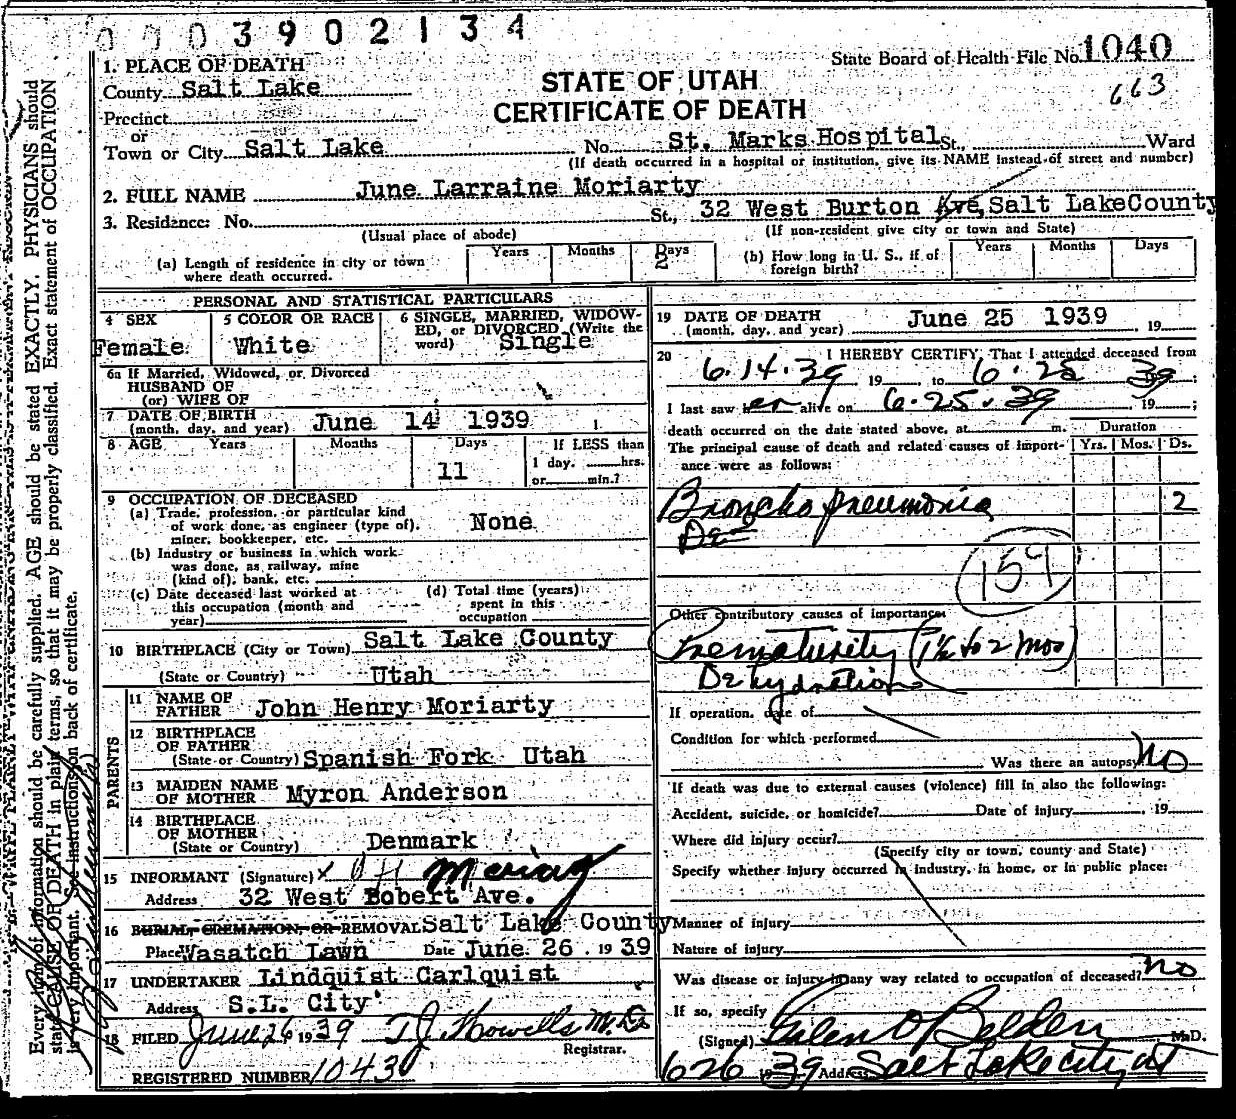 0003902134
State Board of Health File No. 1040
663
STATE OF UTAH
CERTIFICATE OF DEATH
1. PLACE OF DEATH
County Salt Lake
Precinct
or
Town or City Salt Lake No. St. Marks Hospital St., Ward
(If death occurred in a hospital or institution, give its NAME instead of street and number)
2. FULL NAME June Larraine Moriarty
3. Residence: No. St., 32 West Burton Ave, Salt Lake County
(Usual place of abode) (If non-resident give city or town and State)
(a) Length of residence in city or town where death occurred. Years Months Days 2
(b) How long in U. S., if of foreign birth? Years Months Days
PERSONAL AND STATISTICAL PARTICULARS
4 SEX Female
5 COLOR OR RACE White
6 SINGLE, MARRIED, WIDOWED, or DIVORCED (Write the word) Single
6a If Married, Widowed, or Divorced
HUSBAND OF
(or) WIFE OF
7 DATE OF BIRTH
(month, day, and year) June 14 1939
8 AGE Years Months Days 11
If LESS than
1 day, hrs.
or min.?
9 OCCUPATION OF DECEASED
(a) Trade, profession, or particular kind
of work done, as engineer (type of),
miner, bookkeeper, etc. None
(b) Industry or business in which work
was done, as railway, mine
(kind of), bank, etc.
(c) Date deceased last worked at
this occupation (month and
year)
(d) Total time (years)
spent in this
occupation
10 BIRTHPLACE (City or Town) Salt Lake County
(State or Country) Utah
PARENTS
11 NAME OF
FATHER John Henry Moriarty
12 BIRTHPLACE
OF FATHER
(State or Country) Spanish Fork Utah
13 MAIDEN NAME
OF MOTHER Myron Anderson
14 BIRTHPLACE
OF MOTHER
(State or Country) Denmark
15 INFORMANT (Signature) x J H
Address 32 West Bobert Ave.
16 BURIAL, CREMATION, OR REMOVAL Salt Lake County
Place Wasatch Lawn Date June 26. 1939
17 UNDERTAKER Lindquist Carlquist
Address S.L. City
18 FILED June 26 1939 T J Howells M.D.
Registrar.
REGISTERED NUMBER 1043
19 DATE OF DEATH
(month, day, and year) June 25 1939, 19
20 I HEREBY CERTIFY, That I attended deceased from
6-14-39 19 to 6-25 39;
I last saw her alive on 6-25-39, 19;
death occurred on the date stated above, at m. Duration
The principal cause of death and related causes of importance were as follows: Yrs. Mos. Ds.
Broncho pneumonia 2
De
159
Other contributory causes of importance:
Prematurity (1½ to 2 mos)
Dehydration
If operation, date of
Condition for which performed
Was there an autopsy No
If death was due to external causes (violence) fill in also the following:
Accident, suicide, or homicide? Date of injury, 19
Where did injury occur?
(Specify city or town, county and State)
Specify whether injury occurred in industry, in home, or in public place:
Manner of injury
Nature of injury
Was disease or injury in any way related to occupation of deceased? no
If so, specify
(Signed) Galen O Belden M.D.
626 1939 Address Salt Lake city ut
Every item of information should be carefully supplied. AGE should be stated EXACTLY. PHYSICIANS should
state CAUSE OF DEATH in plain terms, so that it may be properly classified. Exact statement of OCCUPATION
is very important. See instructions on back of certificate.